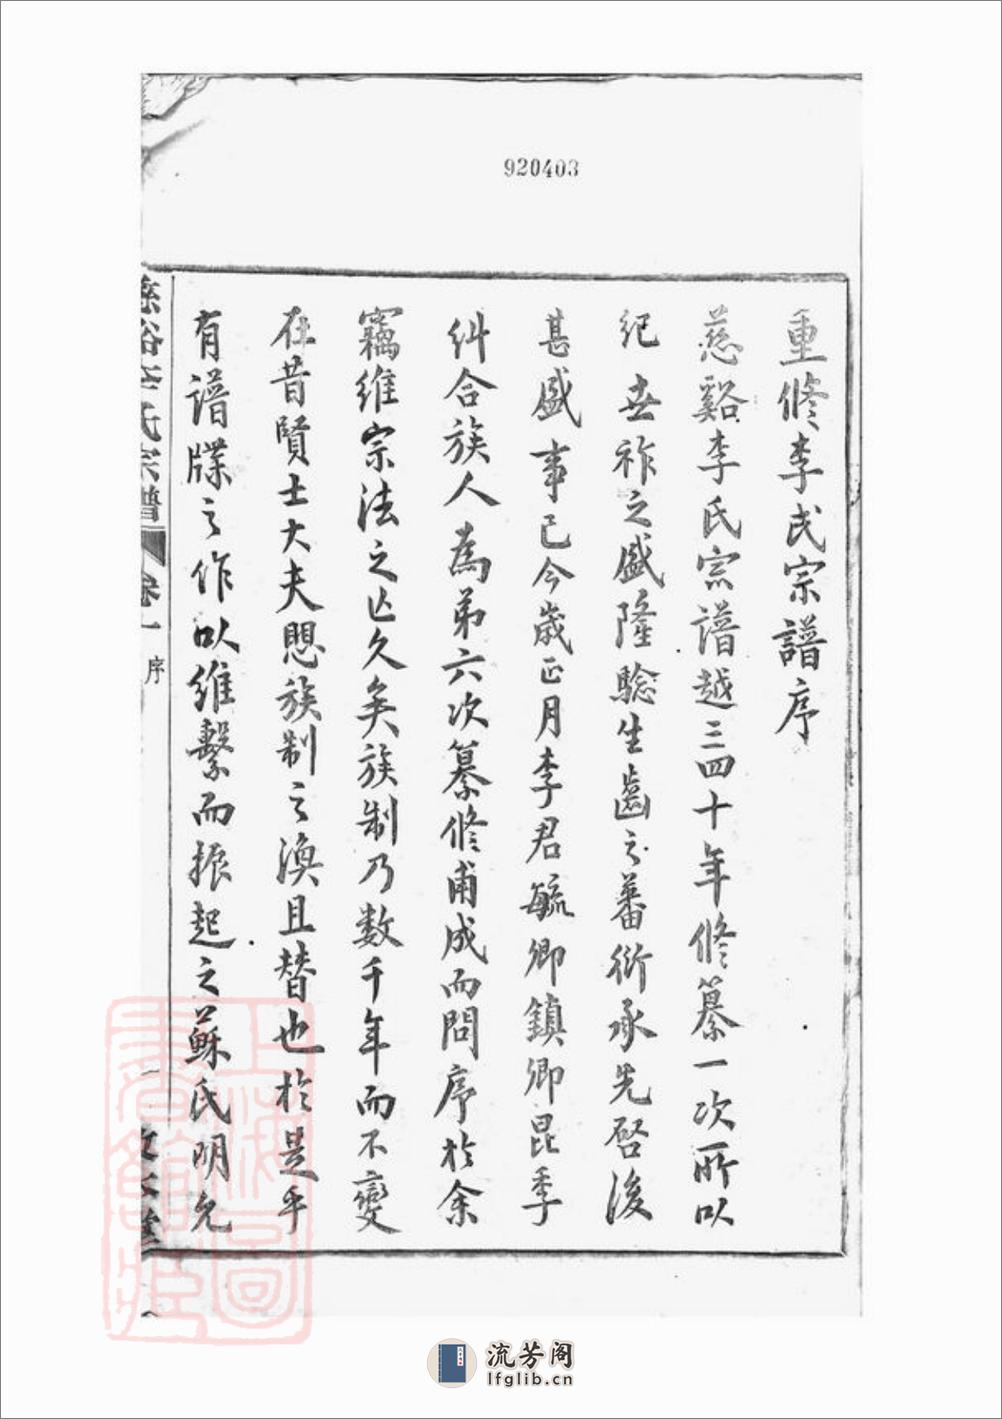 920403
重修李氏宗譜序
慈谿李氏宗譜越三四十年修纂一次所以
紀世祚之盛隆驗生齒之蕃衍承先啓後
甚盛事已今歲正月李君毓卿鎮卿昆季
糾合族人為弟六次纂修甫成而問序於余
竊維宗法之亡久矣族制乃數千年而不變
在昔賢士大夫愳族制之渙且替也於是乎
有譜牒之作以維繫而振起之蘇氏明允
慈谿李氏宗譜
卷一
序
一
上海圖書館藏
流芳阁
lfglib.cn